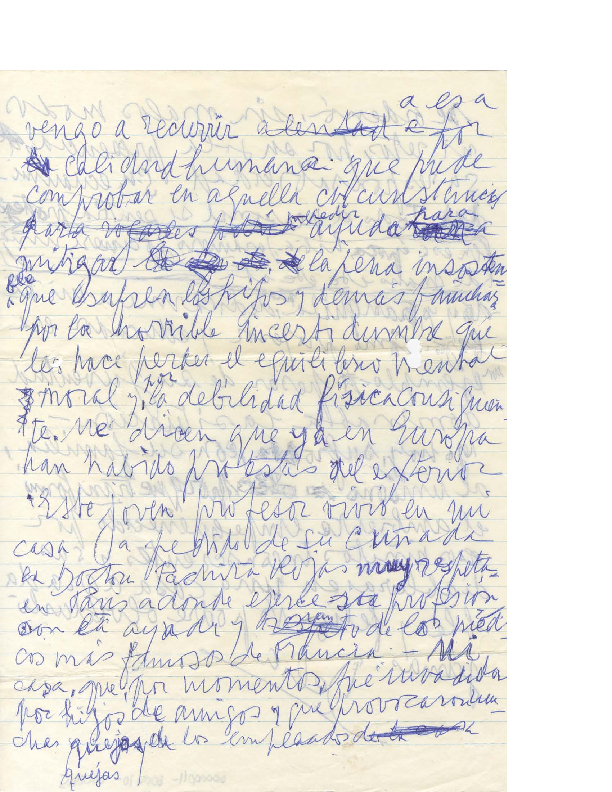 a esa
vengo a recurrir por
calidad humana que pude
comprobar en aquella circunstancia
para pedir ayuda para
mitigar la pena insosten
ble que sufren los hijos y demás
por la horrible incertidumbre que
les hace perder el equilibrio mental
moral y por la debilidad física consiguien-
te. Me dicen que ya en Europa
han habido protestas del exterior
Este joven profesor vivió en mi
casa (a pedido de su cuñada
la Doctora Rojas muy respeta-
en Paris a donde ejerce su profesión
con la ayuda y de los médi-
cos más famosos de Francia — Mi
casa, que, por momentos, fue invadida
por hijos de amigos y que provocaron mu-
chas quejas de los empleados
quejas